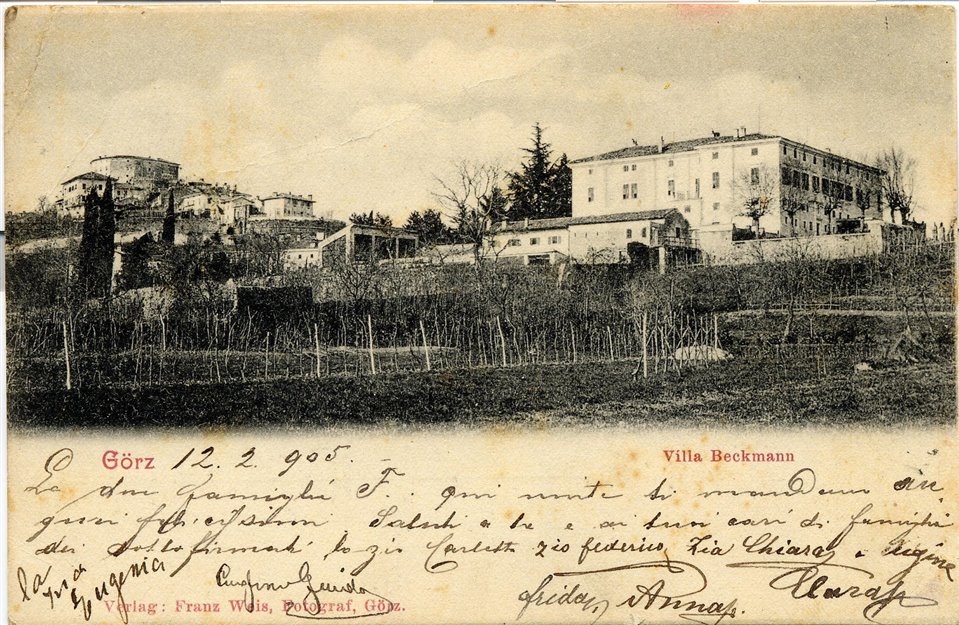 Görz 12. 2. 905. Villa Beckmann
Le due famiglie F. qui unite ti mandano au
guri felicissimi Saluti a te e ai tuoi cari di famiglia
dei sottofirmati lo zio Carletto zio federico, Zia Chiara, e cugine
la zia Eugenia cugino Guido fridа, Anna, Clara
Verlag: Franz Weis, Fotograf, Görz.